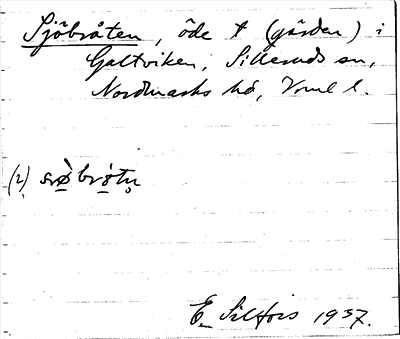 Sjöbråten, öde t (gården) i
Galtviken, Silleruds sn,
Nordmarks hd, Vrml l.
(2) søbrotn
E. Silfors 1937.